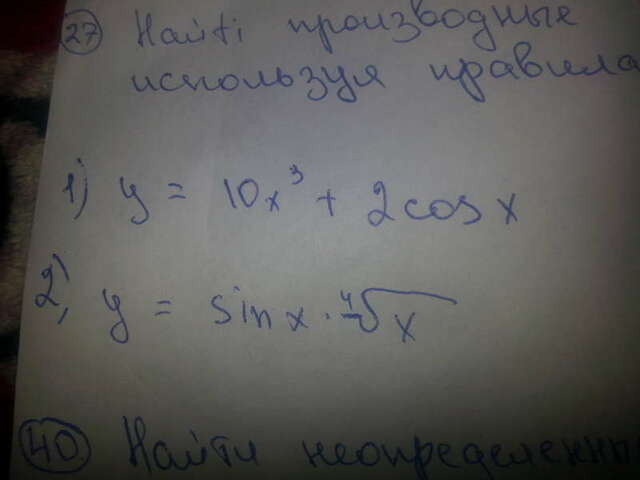 27 Найти производные
используя правила
1) y = 10x³ + 2cos x
2) y = sin x · ⁴√x
40. Найти неопределенны